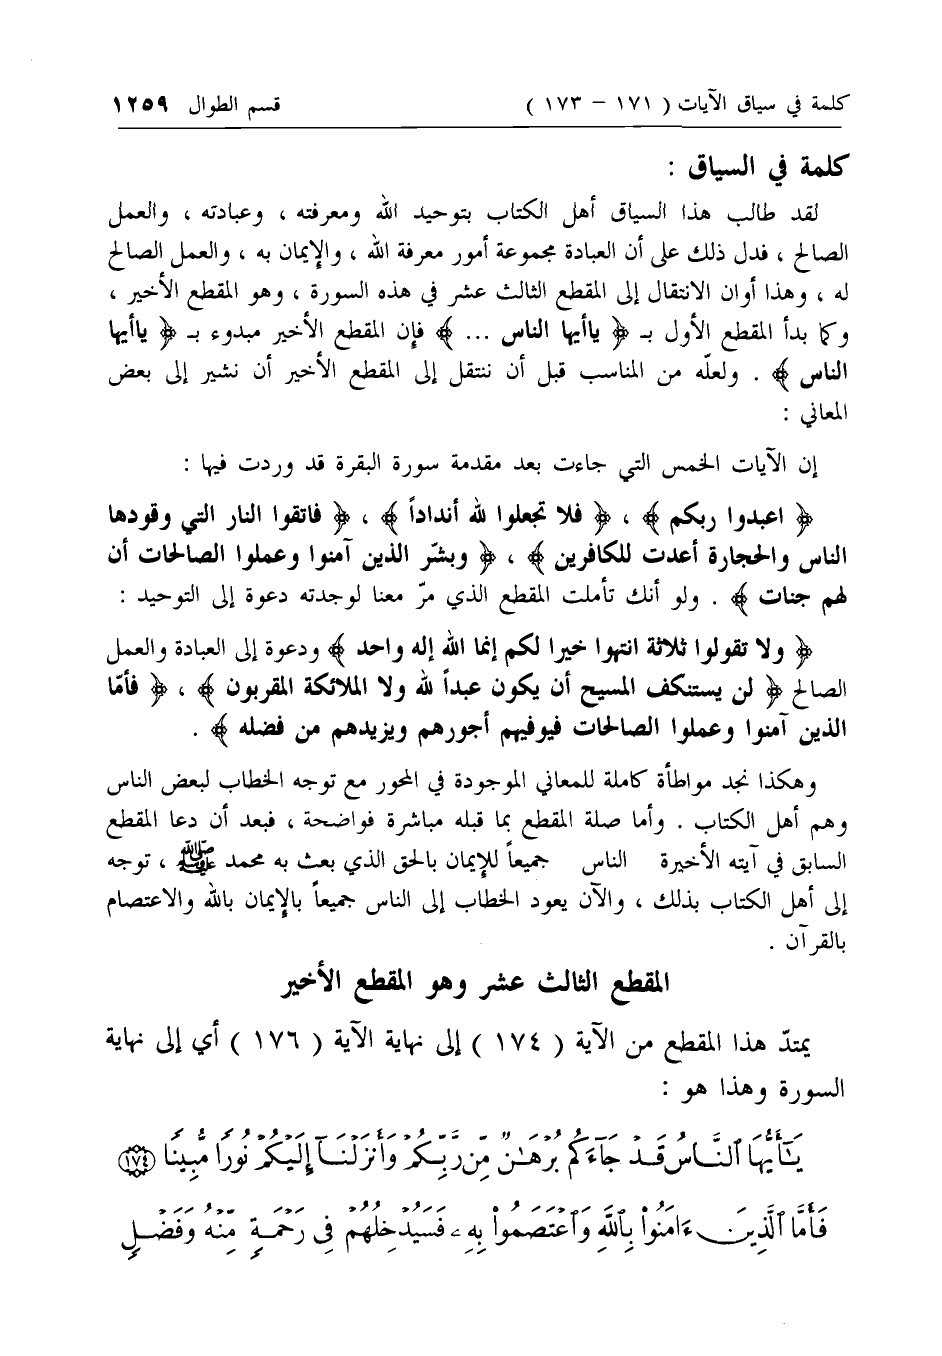 كلمة في سياق الآيات ( ١٧١ – ١٧٣ ) قسم الطوال ١٢٥٩
كلمة في السياق :
لقد طالب هذا السياق أهل الكتاب بتوحيد الله ومعرفته ، وعبادته ، والعمل
الصالح ، فدل ذلك على أن العبادة مجموعة أمور معرفة الله ، والإيمان به ، والعمل الصالح
له ، وهذا أوان الانتقال إلى المقطع الثالث عشر في هذه السورة ، وهو المقطع الأخير ،
وكما بدأ المقطع الأول بـ ﴿ ياأيها الناس ... ﴾ فإن المقطع الأخير مبدوء بـ ﴿ ياأيها
الناس ﴾ . ولعلّه من المناسب قبل أن ننتقل إلى المقطع الأخير أن نشير إلى بعض
المعاني :
إن الآيات الخمس التي جاءت بعد مقدمة سورة البقرة قد وردت فيها :
﴿ اعبدوا ربكم ﴾ ، ﴿ فلا تجعلوا لله أنداداً ﴾ ، ﴿ فاتقوا النار التي وقودها
الناس والحجارة أعدت للكافرين ﴾ ، ﴿ وبشّر الذين آمنوا وعملوا الصالحات أن
لهم جنات ﴾ . ولو أنك تأملت المقطع الذي مرّ معنا لوجدته دعوة إلى التوحيد :
﴿ ولا تقولوا ثلاثة انتهوا خيرا لكم إنما الله إله واحد ﴾ ودعوة إلى العبادة والعمل
الصالح ﴿ لن يستنكف المسيح أن يكون عبداً لله ولا الملائكة المقربون ﴾ ، ﴿ فأمّا
الذين آمنوا وعملوا الصالحات فيوفيهم أجورهم ويزيدهم من فضله ﴾ .
وهكذا نجد مواطأة كاملة للمعاني الموجودة في المحور مع توجه الخطاب لبعض الناس
وهم أهل الكتاب . وأما صلة المقطع بما قبله مباشرة فواضحة ، فبعد أن دعا المقطع
السابق في آيته الأخيرة الناس جميعاً للإيمان بالحق الذي بعث به محمد ﷺ ، توجه
إلى أهل الكتاب بذلك ، والآن يعود الخطاب إلى الناس جميعاً بالإيمان بالله والاعتصام
بالقرآن .
المقطع الثالث عشر وهو المقطع الأخير
يمتدّ هذا المقطع من الآية ( ١٧٤ ) إلى نهاية الآية ( ١٧٦ ) أي إلى نهاية
السورة وهذا هو :
يَـٰٓأَيُّهَا ٱلنَّاسُ قَدْ جَآءَكُم بُرْهَـٰنٌ مِّن رَّبِّكُمْ وَأَنزَلْنَآ إِلَيْكُمْ نُورًا مُّبِينًا ١٧٤
فَأَمَّا ٱلَّذِينَ ءَامَنُوا۟ بِٱللَّهِ وَٱعْتَصَمُوا۟ بِهِۦ فَسَيُدْخِلُهُمْ فِى رَحْمَةٍ مِّنْهُ وَفَضْلٍ